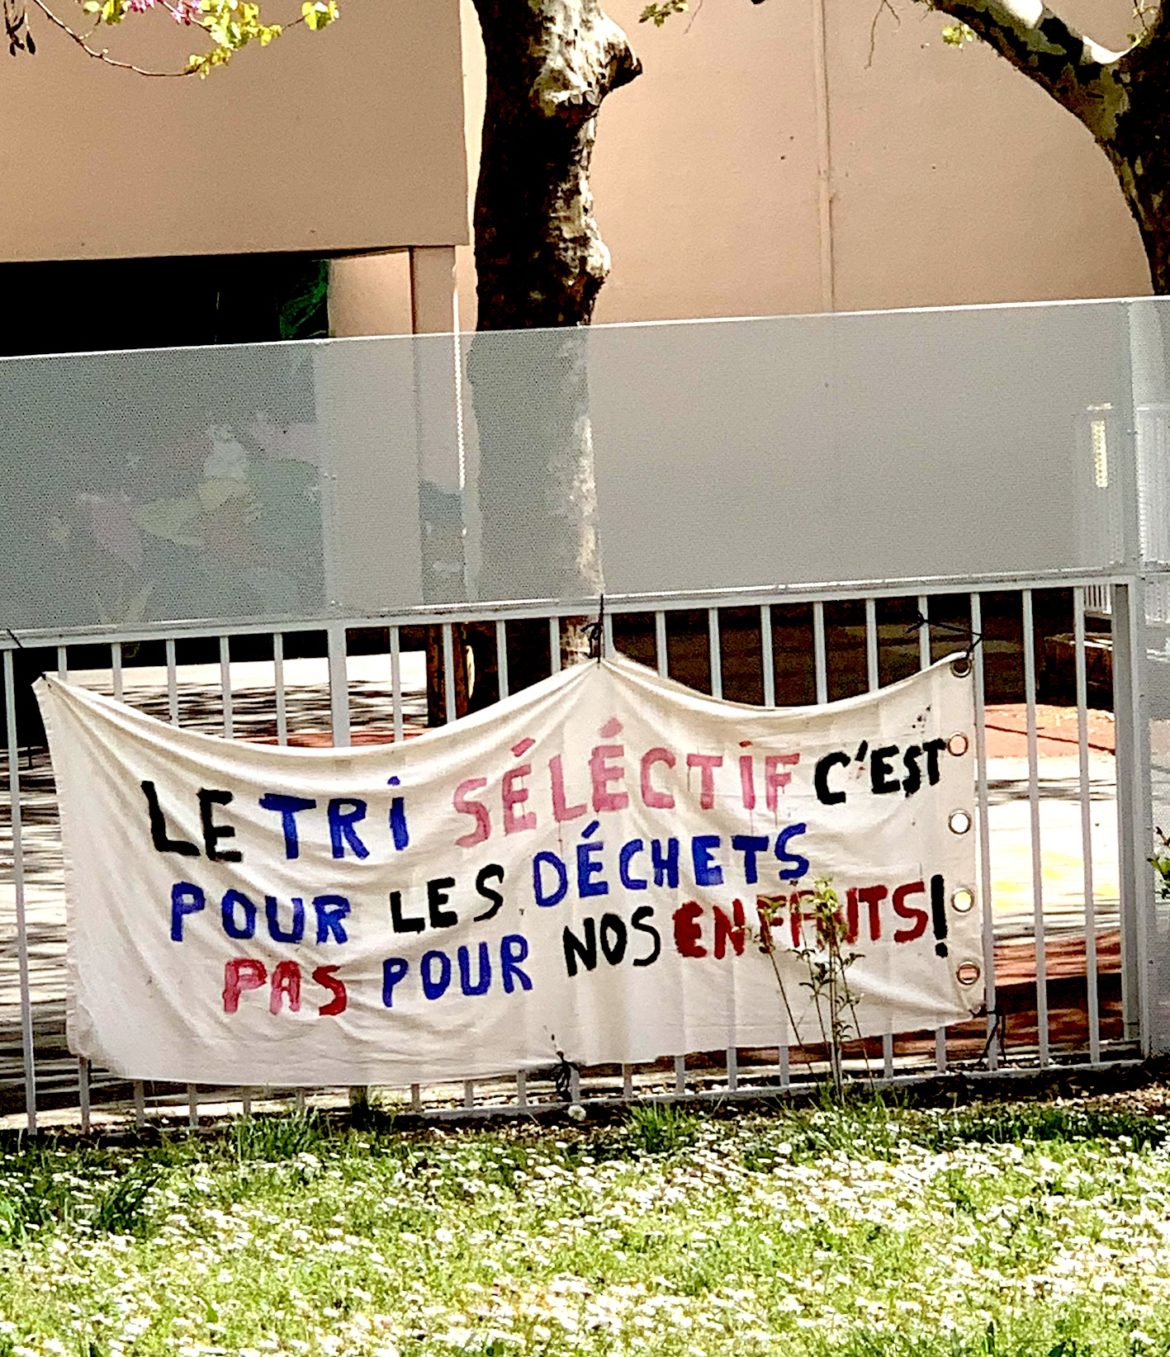 LE TRi SÉLÉCTiF C'EST
POUR LES DÉCHETS
PAS POUR NOS ENFANTS!